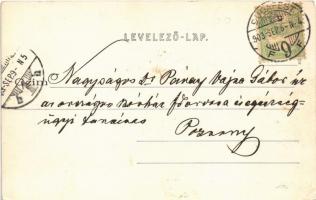 LEVELEZŐ-LAP.
Czim
Nagyságos Dr Pávay Vajna Gábor úr
az országos kórház főorvosa és egészség-
ügyi tanácsos
Pozsony